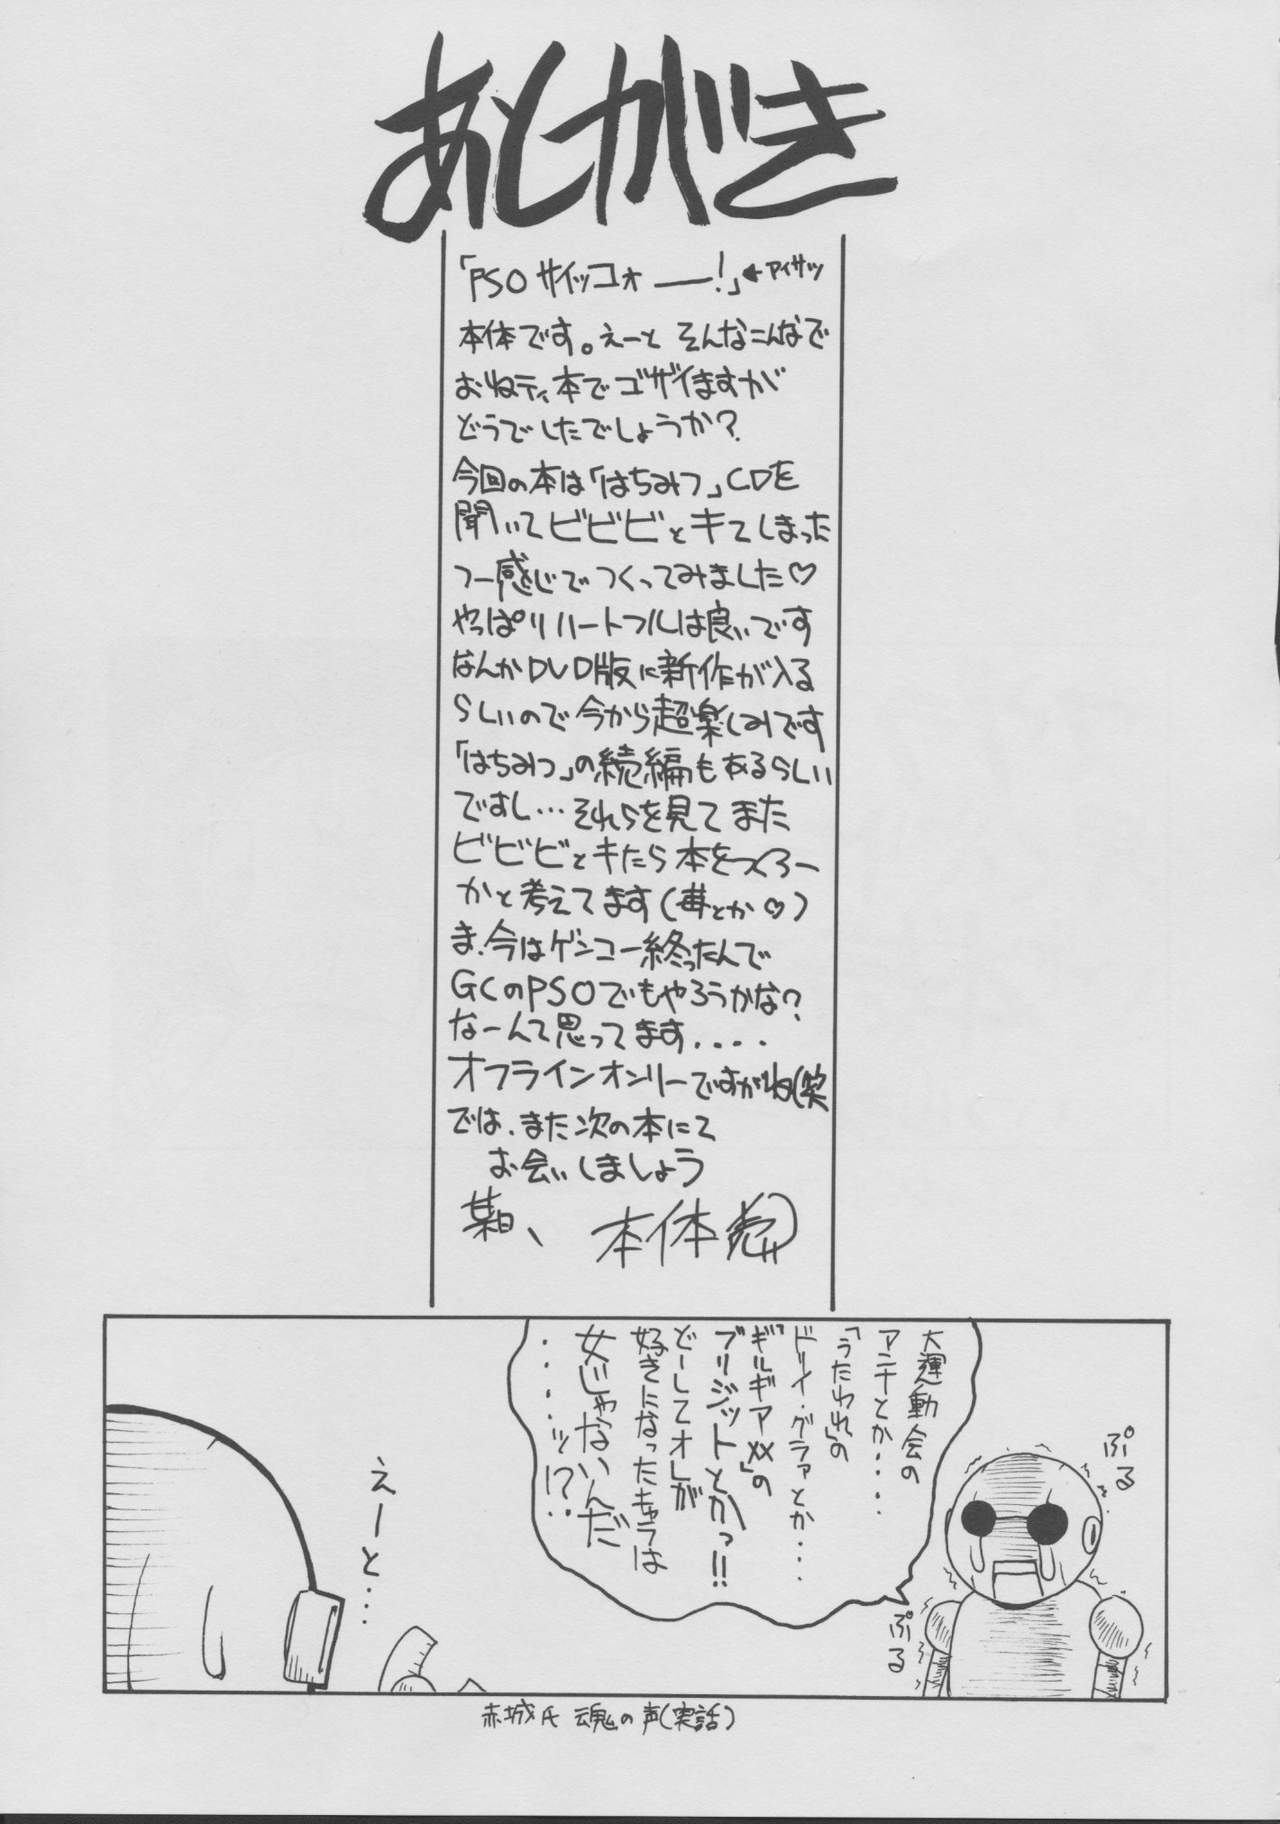 あとがき
「PSO サイッコォ ――!」←アイサツ
本体です。えーと そんなこんなで
おねティ本でゴザイますが
どうでしたでしょうか?
今回の本は「はちみつ」CDを
聞いてビビビとキてしまった
つー感じでつくってみました♡
やっぱりハートフルは良いです
なんかDVD版に新作が入る
らしいので今から超楽しみです
「はちみつ」の続編もあるらしい
ですし…それらを見てまた
ビビビとキたら本をつくろー
かと考えてます(苺とか♡)
ま、今はゲンコー終ったんで
GCのPSOでもやろうかな?
なーんて思ってます....
オフラインオンリーですがね(笑
では、また次の本にて
お会いしましょう
某日、 本体
大運動会の
アンナとか....
「うたわれ」の
ドリィ・グラァとか...
「ギルギアXX」の
ブリジットとかっ!!
どーしてオレが
好きになったキャラは
女じゃないんだ
......ッ!?..
ぷる
ぷる
えーと...
赤城氏 魂の声(実話)